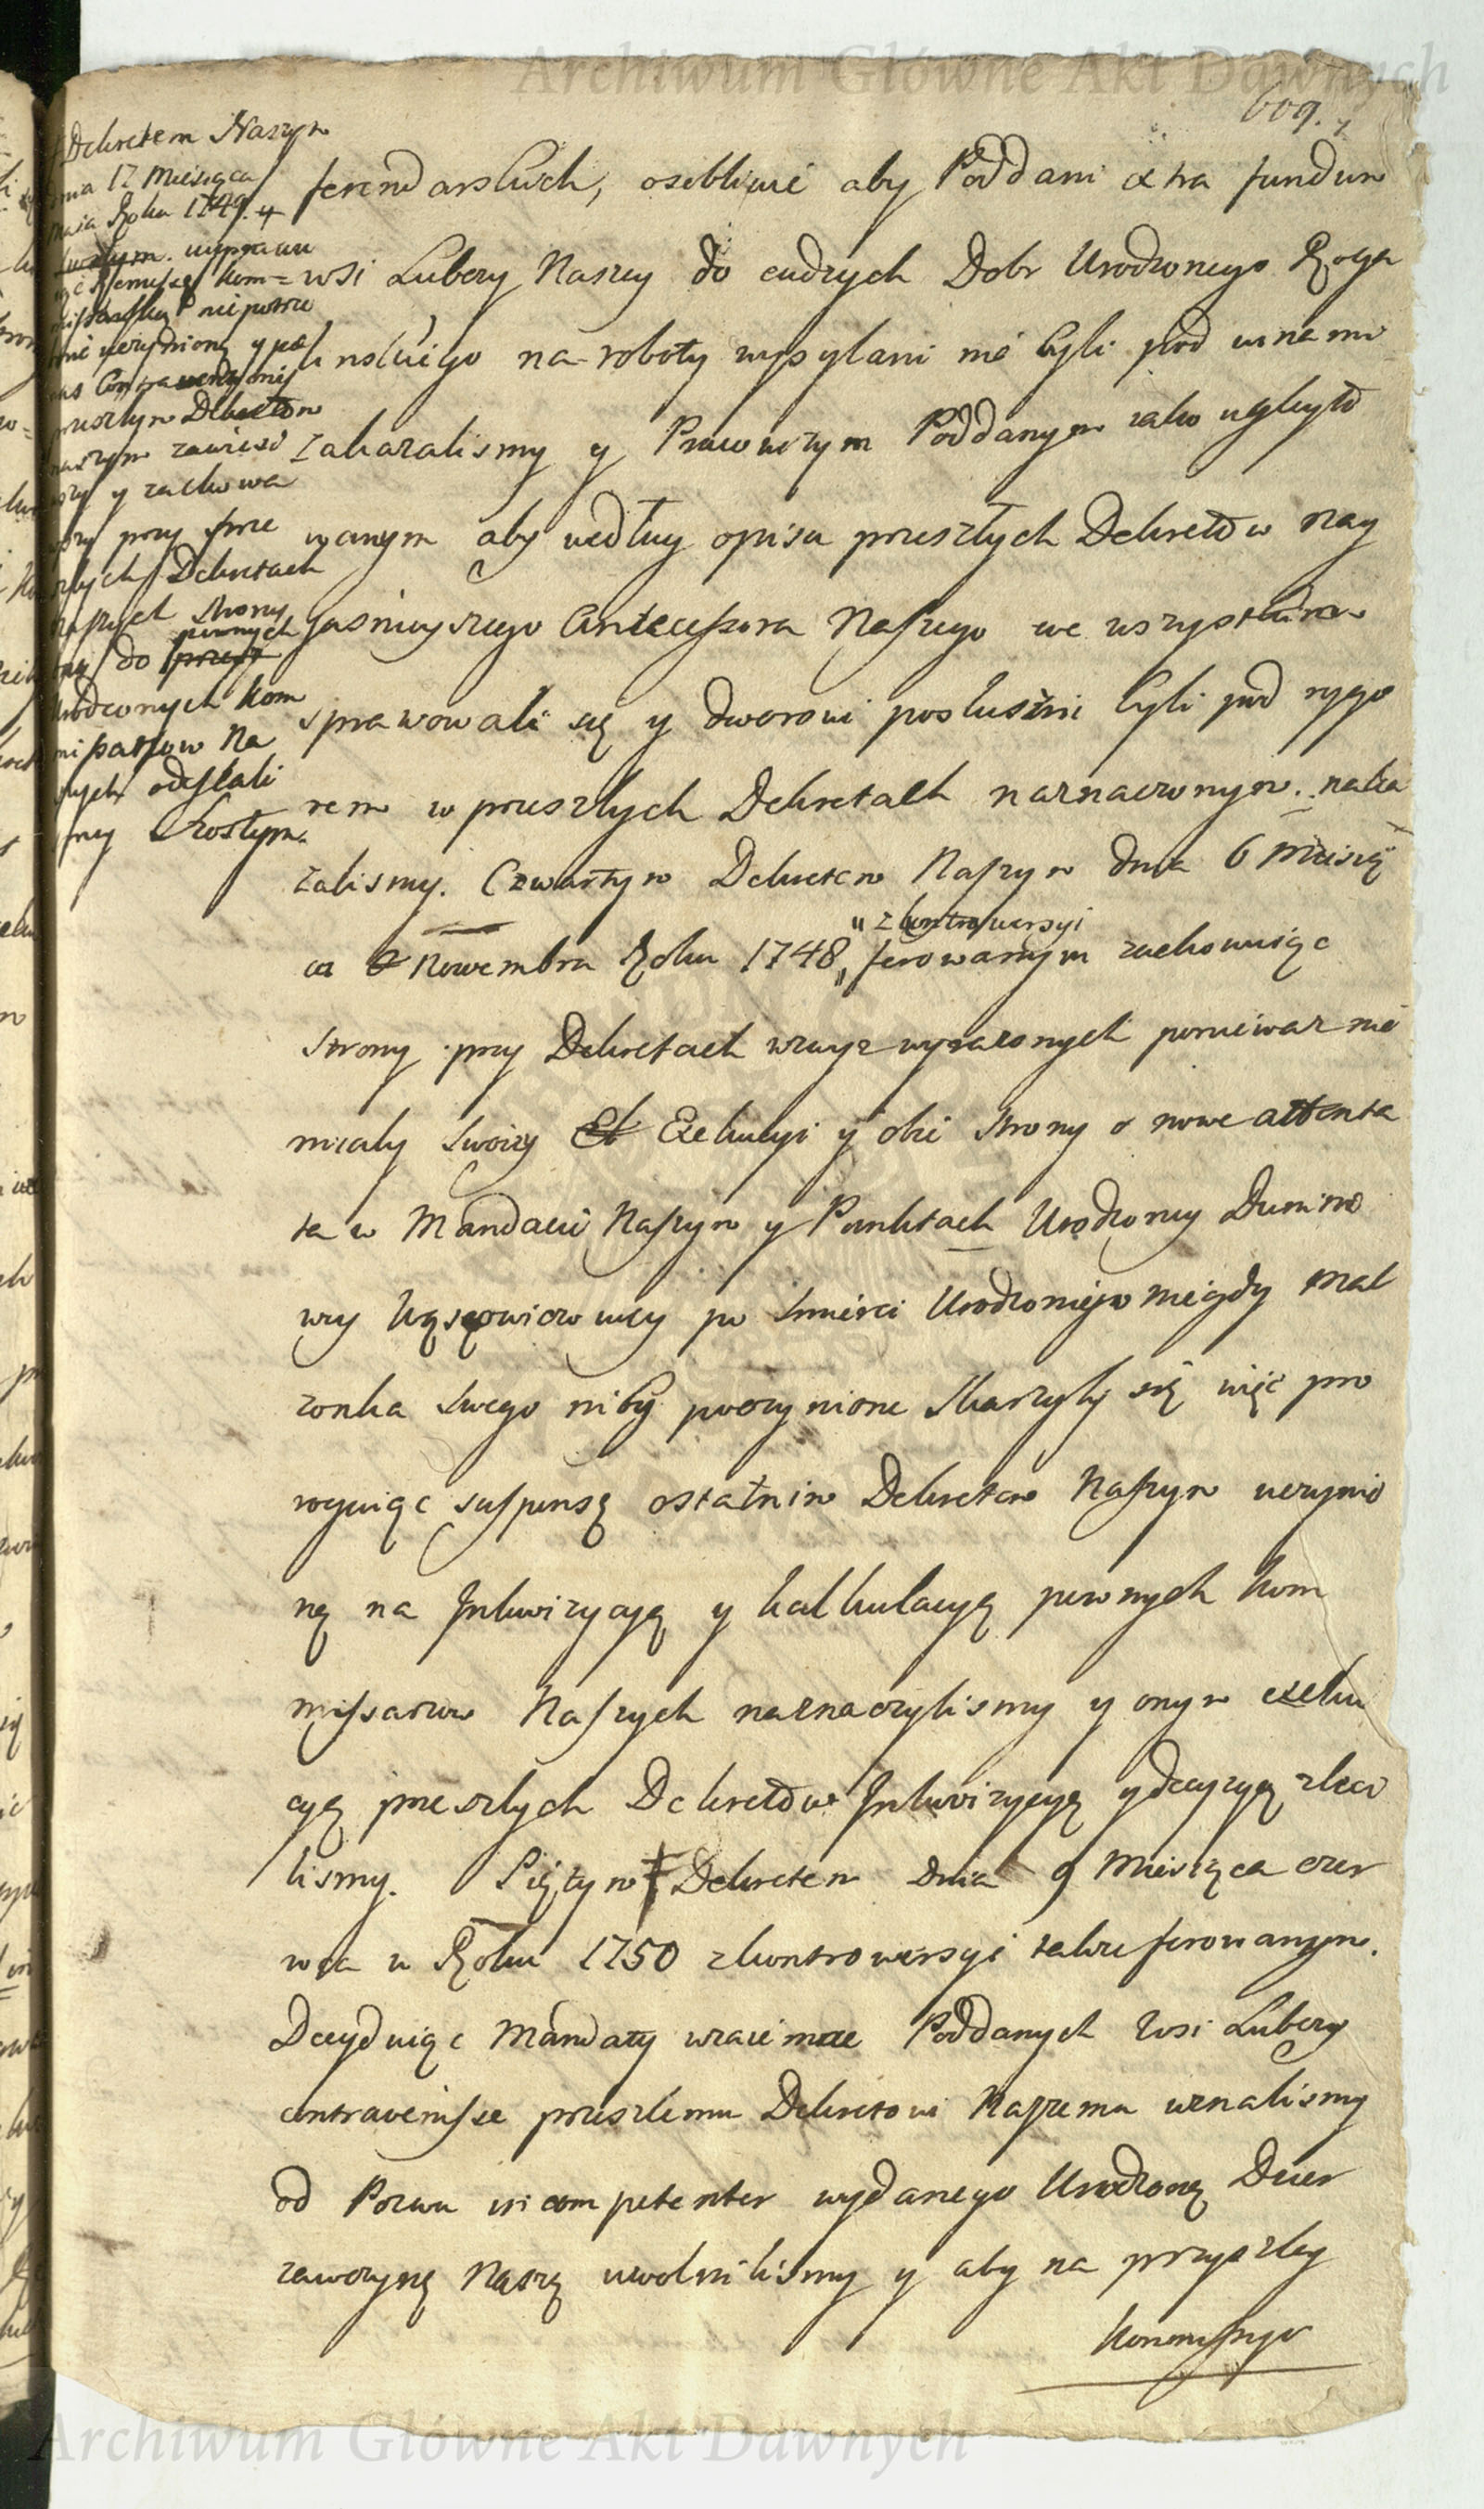 Archiwum Główne Akt Dawnych
609.
Dekretem Naszym
dnia 12 Miesiąca
Maja Roku 1749. 4
wyprawu
Kom=
nie potrze
bnie uczynioną y po
nas
przeszłym Dekretem
naszym zawiesi
y zachowa
przy prze
szłych Dekretach
Naszych strony
pewnych
do przesz
Urodzonych Kom
missarzow Na
szych odesłali
smy Szostym.
ferendarskich, osobliwie aby Poddani extra fundum
wsi Lubczy Naszey do cudzych Dobr Urodzonego Roga
linskiego na roboty wysylani nie byli pod winami
zakazalismy y Prawnizym Poddanym iako
wanym aby według opisu przeszłych Dekretow Nay
jasnieyszego Antecessora Naszego we wszystkim
sprawowali się y dworowi posłuszni byli pod rygo
rem w przeszłych Dekretach naznaczonym. naka
zalismy. Czwartym Dekretem Naszym dnia 6 Miesią
"z kontrowersyi
ca Nowembra Roku 1748 " ferowanym zachowuiąc
strony przy Dekretach wzwyz wyrazonych poniewaz nie
miały swoiey Exekucyi y obie strony o nowe attenta
ta w Mandacie Naszym y Punktach Urodzoney Dunino
wey Wąsowiczowey po smierci Urodzonego niegdy Mał
zonka swego niby poczynione skarzyły się więc pro
roguiąc suspensę ostatnim Dekretem Naszym uczynio
ną na Inkwizycyą y kalkulacyą pewnych Kom
missarzow Naszych naznaczylismy y onym exeku
cyą przeszłych Dekretow Inkwizycyą y decyzyą zleci
lismy. Piątym Dekretem dnia 9 Miesiąca czer
wca w Roku 1750 z kontrowersyi takze ferowanym.
Decyduiąc Mandaty wzaiemne Poddanych Wsi Lubczy
contravenisse przeszlemu Dekretowi Naszemu uznalismy
od Pozwu incompetenter wydanego Urodzoną Dzier
zawczynę Naszą uwolnilismy y aby na przyszley
Kommissyi
Archiwum Główne Akt Dawnych